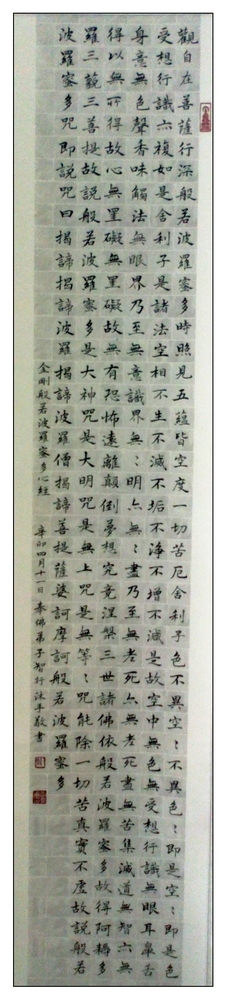 觀自在菩薩行深般若波羅蜜多時照見五蘊皆空度一切苦厄舍利子色不異空〻不異色〻即是空〻即是色
受想行識亦復如是舍利子是諸法空相不生不滅不垢不淨不增不減是故空中無色無受想行識無眼耳鼻舌
身意無色聲香味觸法無眼界乃至無意識界無〻明亦無〻盡乃至無老死亦無老死盡無苦集滅道無智亦無
得以無所得故心無罣礙無罣礙故無有恐怖遠離顛倒夢想究竟涅槃三世諸佛依般若波羅蜜多故得阿耨多
羅三藐三菩提故說般若波羅蜜多是大神咒是大明咒是無上咒是無等〻咒能除一切苦真實不虛故說般若
波羅蜜多咒即說咒曰揭諦揭諦波羅揭諦波羅僧揭諦菩提薩婆訶摩訶般若波羅蜜多
金剛般若波羅蜜多心經 辛卯四月十一日 奉佛弟子智行沐手敬書